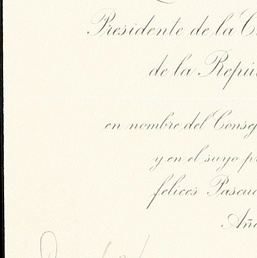 Presidente de la C
de la Repú
en nombre del Conse
y en el suyo p
felices Pascua
Año